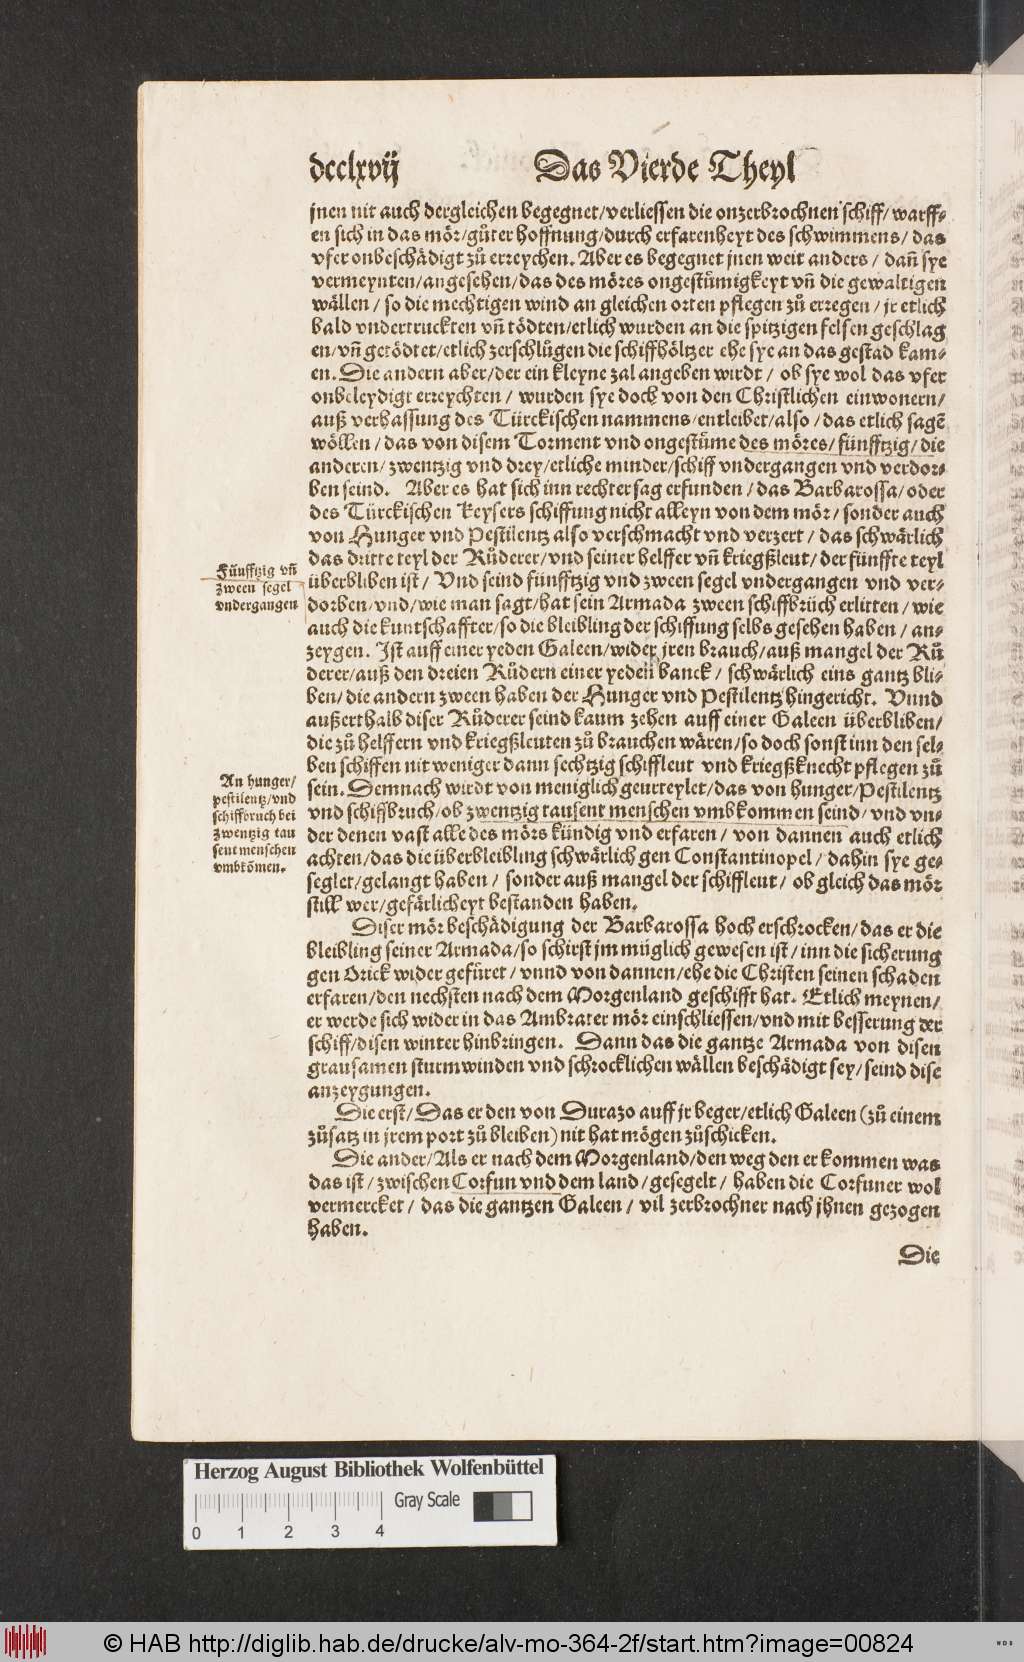 dcclxvij Das Vierde Theyl
jnen nit auch dergleichen begegnet/verliessen die onzerbrochnen schiff/warff-
en sich in das mör/gůter hoffnung/durch erfarenheyt des schwimmens/ das
vfer onbeschädigt zů erreychen. Aber es begegnet jnen weit anders/ dañ sye
vermeynten/angesehen/das des möres ongestümigkeyt vñ die gewaltigen
wällen/ so die mechtigen wind an gleichen orten pflegen zů erregen/ jr etlich
bald vndertruckten vñ tödten/etlich wurden an die spitzigen felsen geschlag
en/vñ getödtet/etlich zerschlůgen die schiffhöltzer ehe sye an das gestad kam-
en. Die andern aber/der ein kleyne zal angeben wirdt/ ob sye wol das vfer
onbeleydigt erreychten/ wurden sye doch von den Christlichen einwonern/
auß verhassung des Türckischen nammens/entleibet/also/das etlich sagẽ
wöllen/das von disem Torment vnd ongestüme des möres/fünfftzig/die
anderen/zwentzig vnd drey/etliche minder/schiff vndergangen vnd verdor-
ben seind. Aber es hat sich inn rechter sag erfunden/das Barbarossa/oder
des Türckischen Keysers schiffung nicht alleyn von dem mör/ sonder auch
von Hunger vnd Pestilentz also verschmacht vnd verzert/ das schwärlich
das dritte teyl der Růderer/vnd seiner helffer vñ kriegßleut/der fünffte teyl
überbliben ist/ Vnd seind fünfftzig vnd zween segel vndergangen vnd ver-
dorben/vnd/wie man sagt/hat sein Armada zween schiffbrüch erlitten/wie
auch die kuntschaffter/so die bleibling der schiffung selbs gesehen haben/ an-
zeygen. Ist auff einer yeden Galeen/wider jren brauch/auß mangel der Rů
derer/auß den dreien Růdern einer yeden banck/ schwärlich eins gantz bli-
ben/die andern zween haben der Hunger vnd Pestilentz hingericht. Vnnd
außerthalb diser Růderer seind kaum zehen auff einer Galeen überbliben/
die zů helffern vnd kriegßleuten zů brauchen wären/so doch sonst inn den sel-
ben schiffen nit weniger dann sechtzig schiffleut vnd kriegßknecht pflegen zů
sein. Demnach wirdt von meniglich geurteylet/das von hunger/Pestilentz
vnd schiffbruch/ob zwentzig tausent menschen vmbkommen seind/vnd vn-
der denen vast alle des mörs kündig vnd erfaren/ von dannen auch etlich
achten/das die überbleibling schwärlich gen Constantinopel/dahin sye ge-
seglet/gelangt haben/ sonder auß mangel der schiffleut/ ob gleich das mör
still wer/gefärlicheyt bestanden haben.
Diser mör beschädigung der Barbarossa hoch erschrocken/das er die
bleibling seiner Armada/so schirst jm müglich gewesen ist/inn die sicherung
gen Orick wider gefüret/ vnnd von dannen/ehe die Christen seinen schaden
erfaren/den nechsten nach dem Morgenland geschifft hat. Etlich meynen/
er werde sich wider in das Ambrater mör einschliessen/vnd mit besserung der
schiff/disen winter hinbringen. Dann das die gantze Armada von disen
grausamen sturmwinden vnd schrocklichen wällen beschädigt sey/seind dise
anzeygungen.
Die erst/Das er den von Durazo auff jr beger/etlich Galeen (zů einem
zůsatz in jrem port zů bleiben) nit hat mögen zůschicken.
Die ander/Als er nach dem Morgenland/den weg den er kommen was
das ist/zwischen Corfun vnd dem land/gesegelt/ haben die Corfuner wol
vermercket/ das die gantzen Galeen/ vil zerbrochner nach jhnen gezogen
haben.
Die
Fünfftzig vñ
zween segel
vndergangen
An hunger/
pestilentz/vnd
schiffbruch bei
zwentzig tau
sent menschen
vmbkõmen.
Herzog August Bibliothek Wolfenbüttel
Gray Scale
0 1 2 3 4
© HAB http://diglib.hab.de/drucke/alv-mo-364-2f/start.htm?image=00824